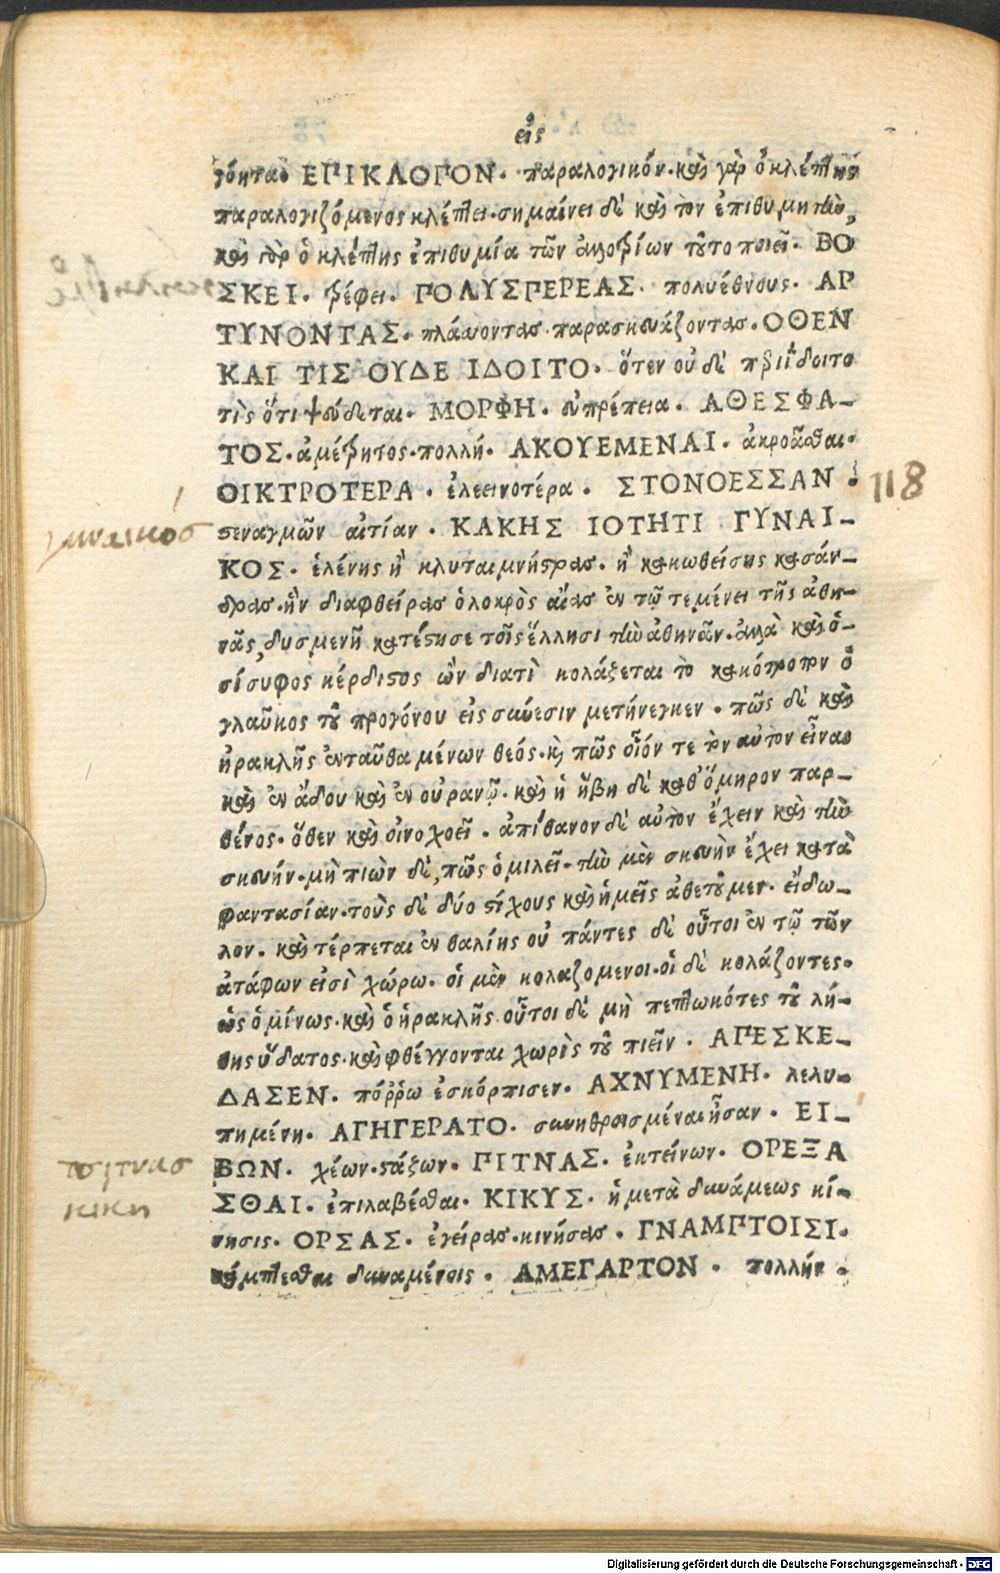 εἰς
γόητα· ΕΠΙΚΛΟΠΟΝ. παραλογικόν. καὶ γὰρ ὁ κλέπτης
παραλογιζόμενος κλέπτει. σημαίνει δὲ καὶ τὸν ἐπιθυμητὴν,
καὶ γὰρ ὁ κλέπτης ἐπιθυμία τῶν ἀλλοτρίων τοῦτο ποιεῖ. ΒΟ
ΣΚΕΙ. τρέφει. ΠΟΛΥΣΠΕΡΕΑΣ. πολυέθνους. ΑΡ
ΤΥΝΟΝΤΑΣ. πλάττοντας. παρασκευάζοντας. ΟΘΕΝ
ΚΑΙ ΤΙΣ ΟΥΔΕ ΙΔΟΙΤΟ. ὅτεν οὐδὲ προΐδοιτο
τὶς ὅτι ψεύδεται. ΜΟΡΦΗ. εὐπρέπεια. ΑΘΕΣΦΑ-
ΤΟΣ. ἀμέτρητος. πολλή. ΑΚΟΥΕΜΕΝΑΙ. ἀκροᾶσθαι.
ΟΙΚΤΡΟΤΕΡΑ. ἐλεεινοτέρα. ΣΤΟΝΟΕΣΣΑΝ.
118
στεναγμῶν αἰτίαν. ΚΑΚΗΣ ΙΟΤΗΤΙ ΓΥΝΑΙ-
γυναικός
ΚΟΣ. ἑλένης ἢ κλυταιμνήστρας. ἢ κακωθείσης κασάν-
δρας. ἣν διαφθείρας ὁ λοκρὸς αἴας ἐν τῷ τεμένει τῆς ἀθη-
νᾶς, δυσμενῆ κατέστησε τοῖς ἕλλησι τὴν ἀθηνᾶν. ἀλλὰ καὶ ὁ-
σίσυφος κέρδιστος ὢν διατὶ κολάζεται τὸ κακότροπον ὁ
γλαῦκος τοῦ προγόνου εἰς σύνεσιν μετήνεγκεν. πῶς δὲ καὶ
ἡρακλῆς ἐνταῦθα μένων θεός. καὶ πῶς οἷόν τε τὸν αὐτὸν εἶναι
καὶ ἐν ἅδου καὶ ἐν οὐρανῷ. καὶ ἡ ἥβη δὲ καθ' ὅμηρον παρ-
θένος. ὅθεν καὶ οἰνοχοεῖ. ἀπίθανον δὲ αὐτὸν ἔχειν καὶ τὴν
σκευήν. μὴ πιὼν δὲ, πῶς ὁμιλεῖ. τὴν μὲν σκευὴν ἔχει κατὰ
φαντασίαν. τοὺς δὲ δύο στίχους καὶ ἡμεῖς ἀθετοῦμεν. εἴδω-
λον. καὶ τέρπεται ἐν θαλίης οὐ πάντες δὲ οὗτοι ἐν τῷ τῶν
ἀτάφων εἰσὶ χώρω. οἱ μὲν κολαζόμενοι. οἱ δὲ κολάζοντες.
ὡς ὁ μίνως. καὶ ὁ ἡρακλῆς. οὗτοι δὲ μὴ πεπτωκότες τοῦ λή-
θης ὕδατος. καὶ φθέγγονται χωρὶς τοῦ πιεῖν. ΑΠΕΣΚΕ-
ΔΑΣΕΝ. πόῤῥω ἐσκόρπισεν. ΑΧΝΥΜΕΝΗ. λελυ-
πημένη. ΑΓΗΓΕΡΑΤΟ. συνηθροισμέναι ἦσαν. ΕΙ-
ΒΩΝ. χέων. στάζων. ΠΙΤΝΑΣ. ἐκτείνων. ΟΡΕΞΑ
το πιτνασ
ΣΘΑΙ. ἐπιλαβέσθαι. ΚΙΚΥΣ. ἡ μετὰ δυνάμεως κί-
κικη
νησις. ΟΡΣΑΣ. ἐγείρας. κινήσας. ΓΝΑΜΠΤΟΙΣΙ.
κάμπτεσθαι δυναμένοις. ΑΜΕΓΑΡΤΟΝ. πολλήν.
Digitalisierung gefördert durch die Deutsche Forschungsgemeinschaft - DFG